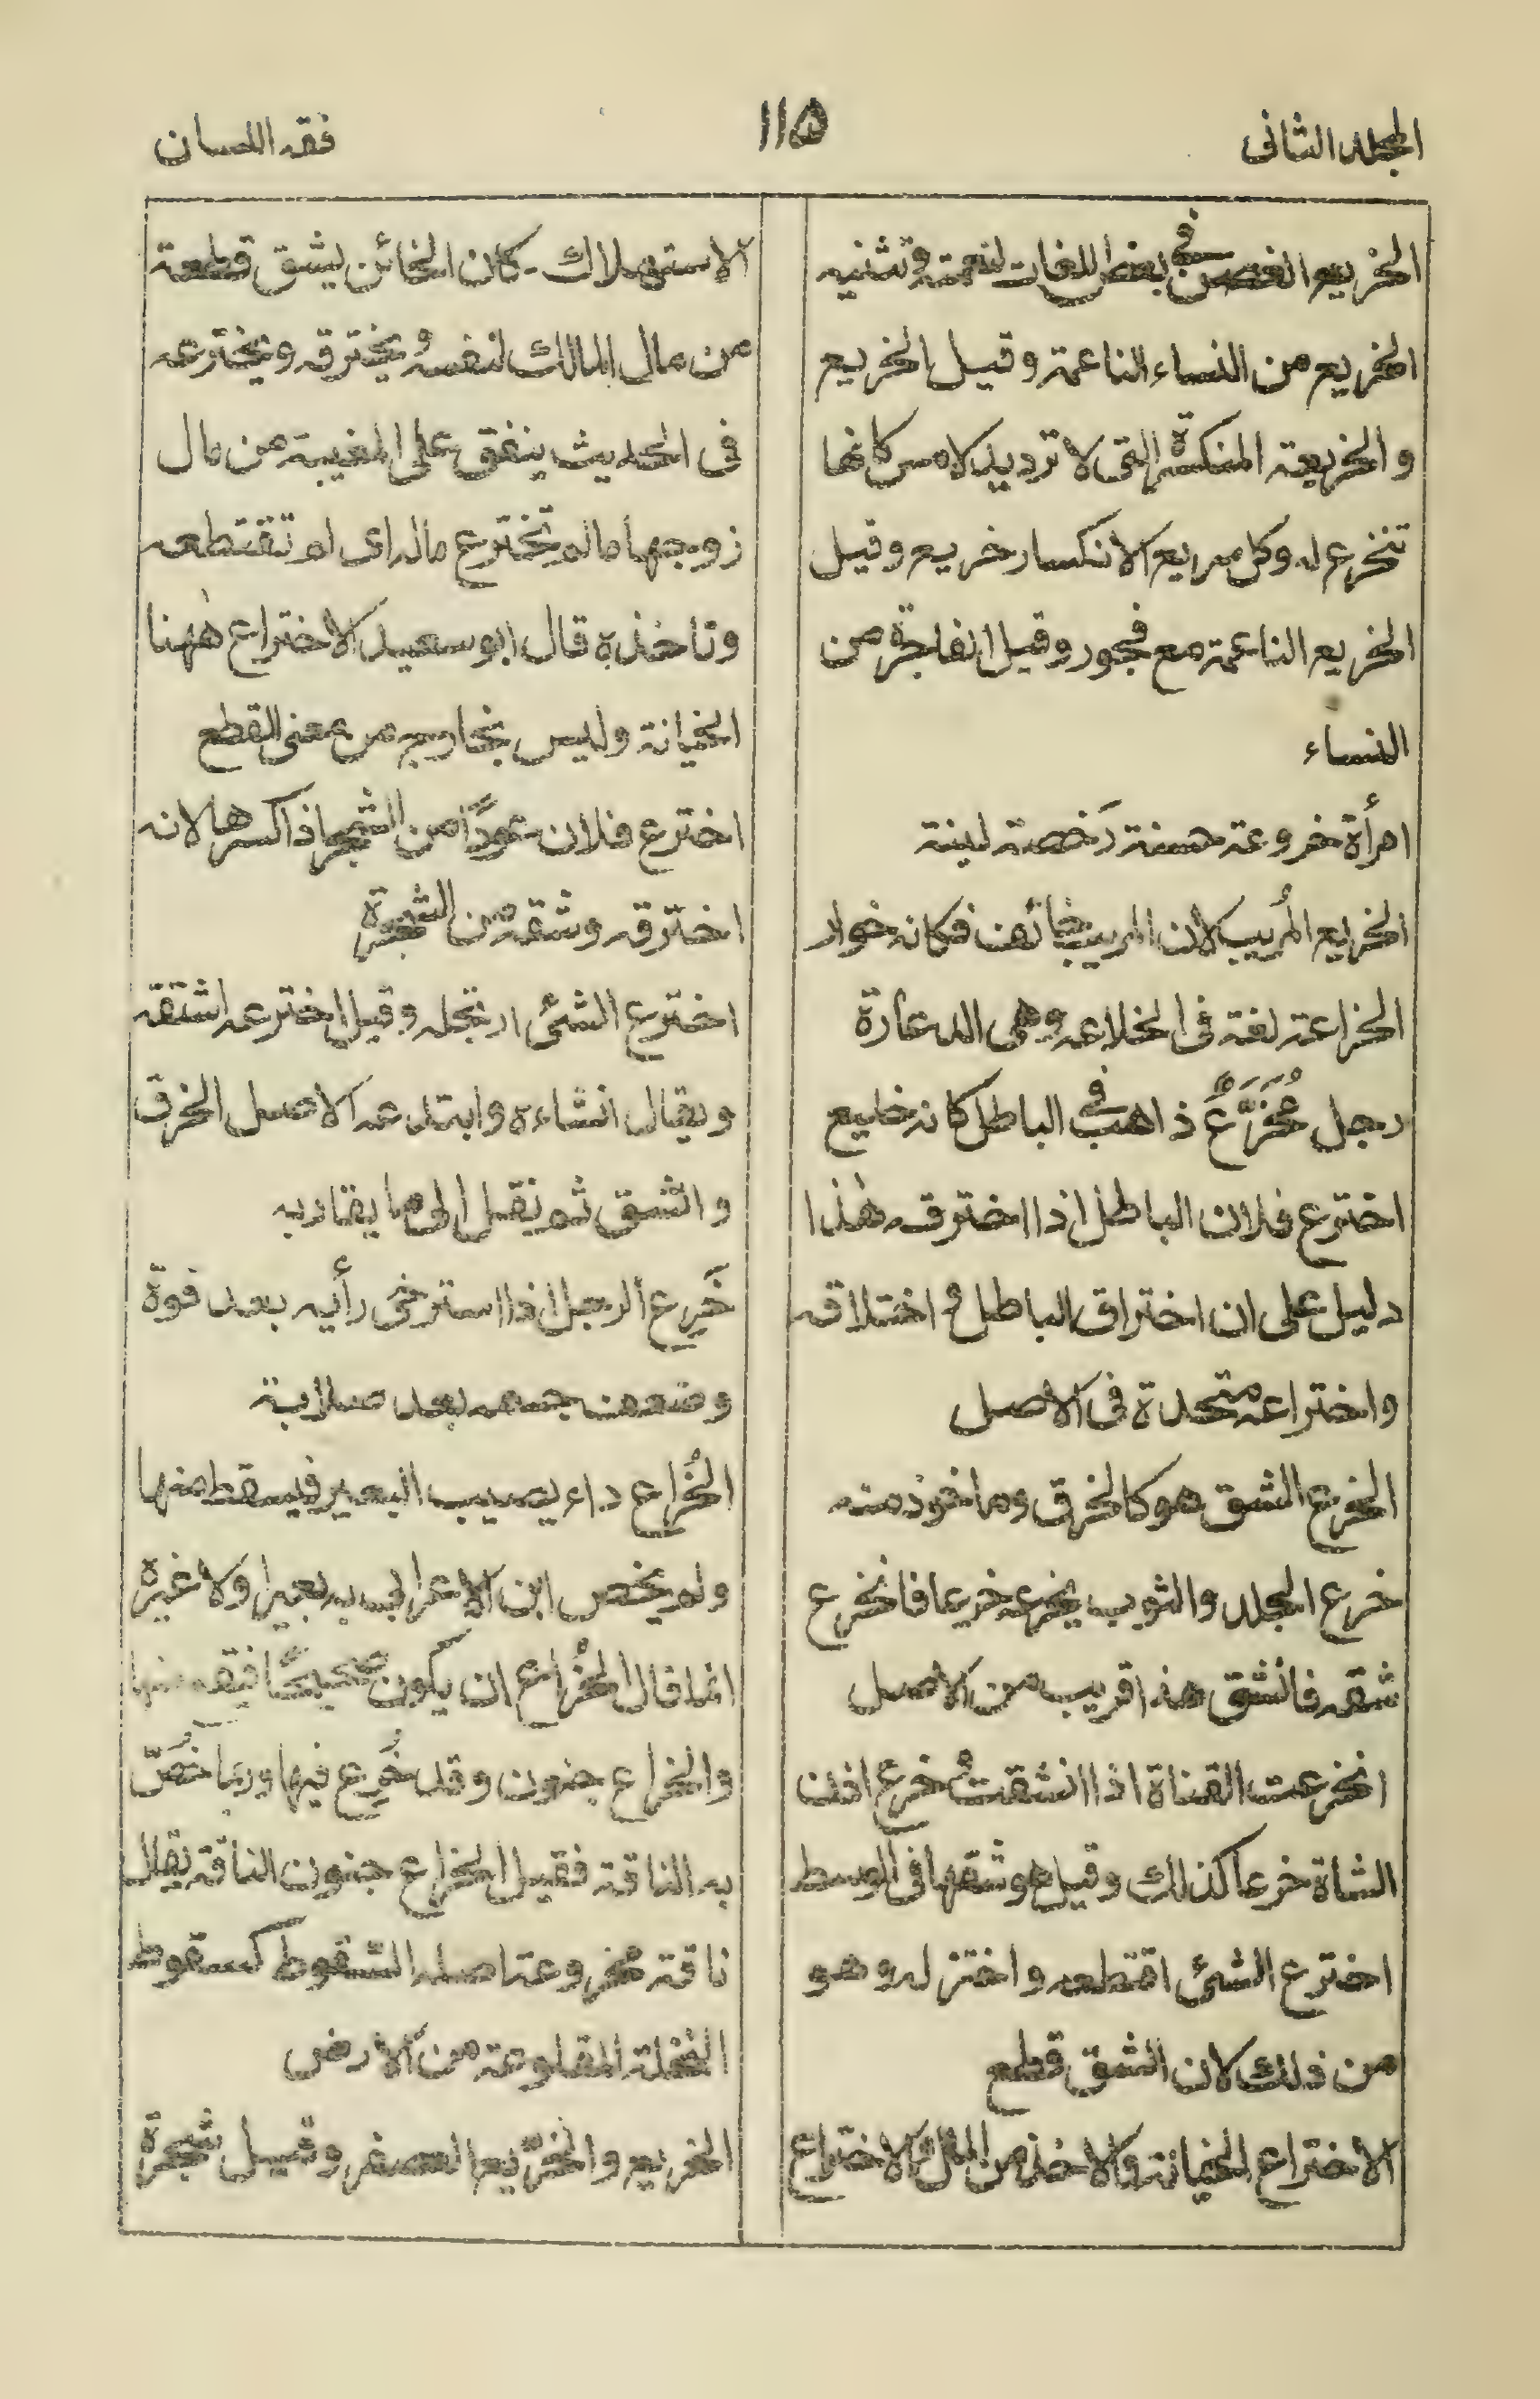 المجلد الثانى
١١۵
فقه اللسان
الخريع الغصن فى بعض اللغات لنعمته و تثنيه
الخريع من النساء الناعمة وقيل الخريع
والخريعة المتكسرة التى لا ترد يد لامس كانها
تتخرع له وكل سريع الانكسار خريع وقيل
الخريع الناعمة مع فجور وقيل الفاجرة من
النساء
امرأة خروعة حسنة رَخصة لينة
الخريع المُريب لان المريب خائف فكانه خوار
الخزاعة لغة فى الخلاعه وهى الدعارة
رجل مُخَرَّعٌ ذاهب فى الباطل كانه خليع
اخترع فلان الباطل اذا اخترقه هٰذا
دليل على ان اختراق الباطل و اختلاقه
واختراعه متحدة فى الاصل
الخرع الشق هو كالخرق وماخوذ منه
خرع الجلد والثوب يخرعه خرعا فانخرع
شقه فانشق هذا قريب من الاصل
انخرعت القناة اذا انشقت و خرع اذن
الشاة خرعا كذلك وقيل هو شقها فى الوسط
اخترع الشئ اقتطعه واختزله وهو
من ذلك لان الشق قطع
الاختراع الخيانة والاخذ من المال والاختراع
الاستهلاك - كان الخائن يشق قطعة
من مال المالك لنفسه و يخترقه ويخترعه
فى الحديث ينفق على المغيبة من مال
زوجها مالم تخترع ماله اى لم تقتطعه
وتاخذه قال ابو سعيد الاختراع هٰهنا
الخيانة وليس بخارج من معنى القطع
اخترع فلان عودًا من الشجر اذا كسرها لانه
اخترقه وشقه من الشجرة
اخترع الشئ ارتجله وقيل اخترعه اشتقه
ويقال انشاءه وابتدعه الاصل الخرق
والشق ثم نقل الى ما يقاربه
خَرِع الرجل اذا استرخى رأيه بعد قوة
وضعف جسمه بعد صلابة
الخُراع داء يصيب البعير فيسقط منها
ولم يخص ابن الاعرابى به بعيرا ولا غيره
انما قال الخُراع ان يكون صحيحًا فيقع منها
والخراع جنون وقد خُرِع فيها وربما خُصّ
به الناقة فقيل الخراع جنون الناقة يقال
ناقة مخروعة اصله السّقوط كسقوط
النخلة المقلوعة من الارض
الخريع والخرّيع العصفر وقيل شجرة